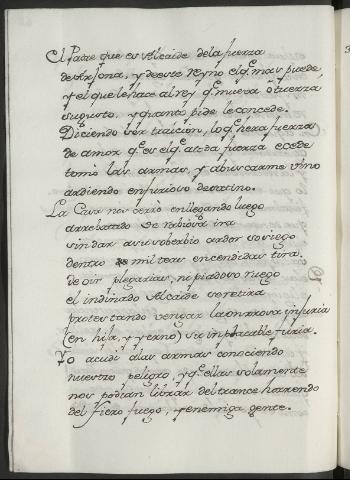 El Padre que es Alcaide dela fuerza
de Arjona, y deeste reyno elq.e mas puede,
y el que le hace al rey q.e mueva ô tuerza
su gusto, y quanto pide le concede.
Diciendo ser traicion, loq.e hera fuerza
de amor q.e es elq.e atoda fuerza ecede
tomò las armas, y abuscarme vino
ardiendo enfurioso desatino.
La Casa nos cercò enllegando luego
arrebatado de rabiosa ira
sin dar asu soberbio ardor sosiego
dentro mil teas encendidas tira.
de oir plegarias, ni piadoso ruego
el indinado Alcaide se retira
protestando vengar la injuria
(en hija, y yerno) su inplacable furia.
Yo acudi alas armas conociendo
nuestro peligro, y q.e ellas solamente
nos podian librar del trance horrendo
del fiero fuego, y enemiga gente.